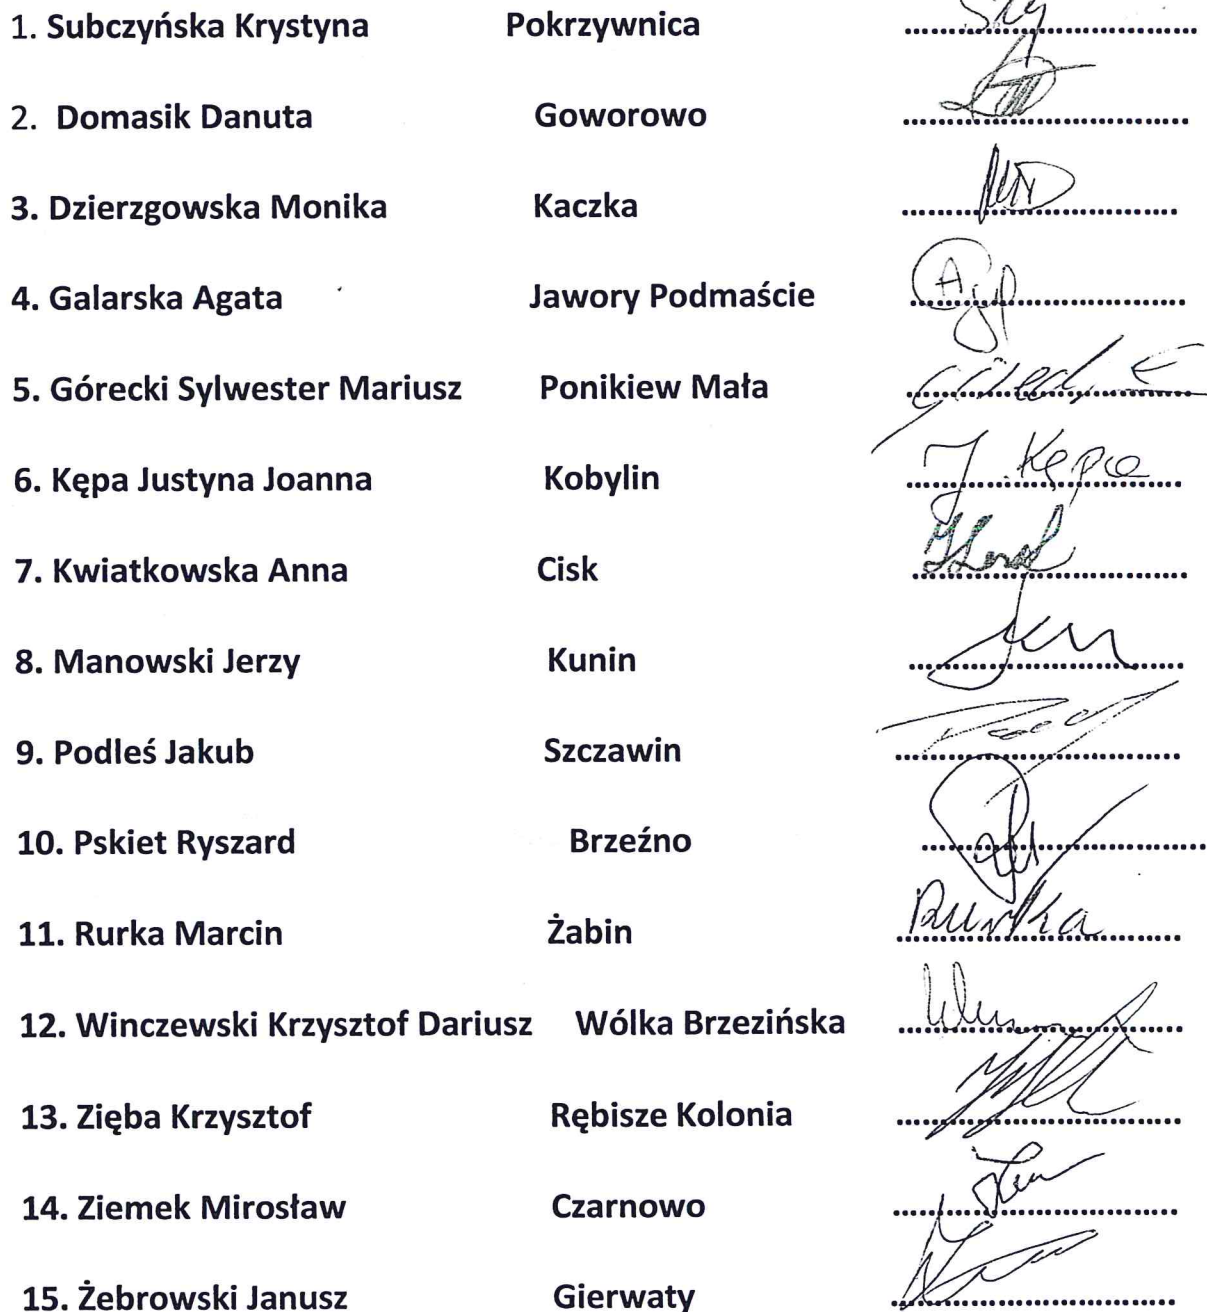 1. Subczyńska Krystyna Pokrzywnica
2. Domasik Danuta Goworowo
3. Dzierzgowska Monika Kaczka
4. Galarska Agata Jawory Podmaście
5. Górecki Sylwester Mariusz Ponikiew Mała
6. Kępa Justyna Joanna Kobylin J. Kępa
7. Kwiatkowska Anna Cisk
8. Manowski Jerzy Kunin
9. Podleś Jakub Szczawin
10. Pskiet Ryszard Brzeźno
11. Rurka Marcin Żabin Rurka
12. Winczewski Krzysztof Dariusz Wólka Brzezińska
13. Zięba Krzysztof Rębisze Kolonia
14. Ziemek Mirosław Czarnowo
15. Żebrowski Janusz Gierwaty